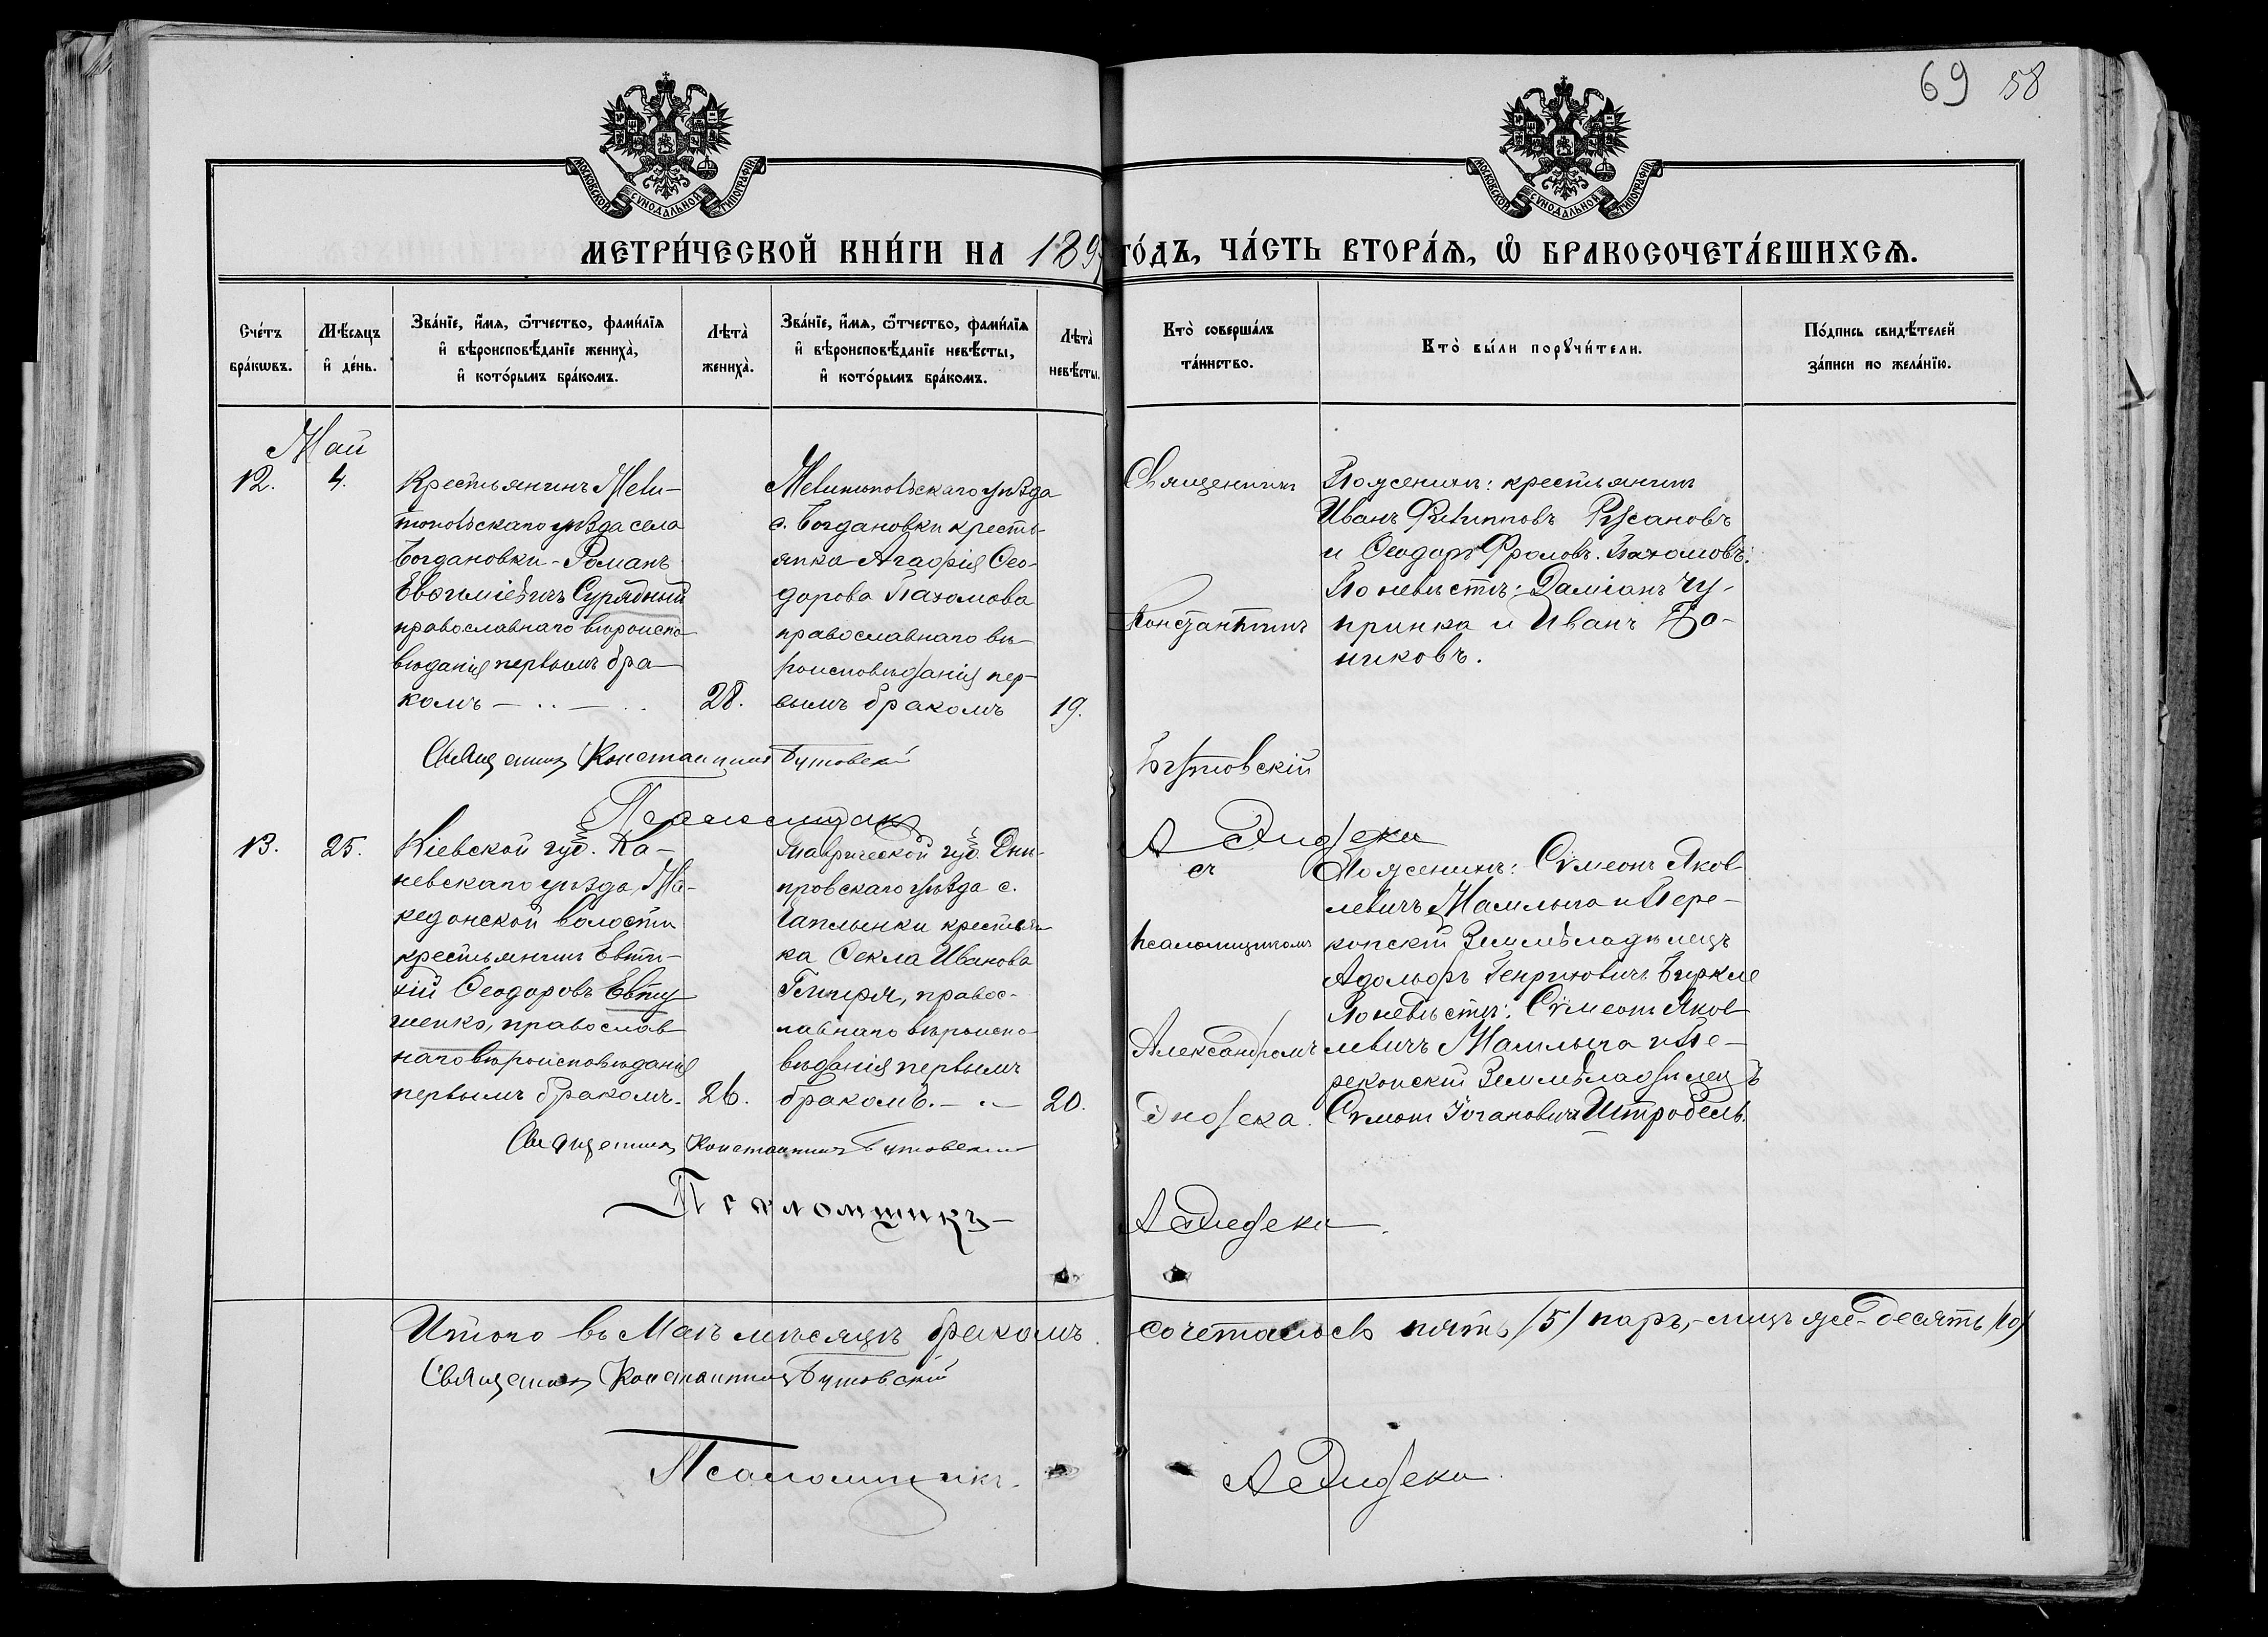 69 58
МОСКОВСКОЙ СѴНОДАЛЬНОЙ ТИПОГРАФІИ
МОСКОВСКОЙ СѴНОДАЛЬНОЙ ТИПОГРАФІИ
МЕТРИ́ЧЕСКОЙ КНИ́ГИ НА 189
ГО́ДЪ, ЧА́СТЬ ВТОРА́Я, Ѽ БРАКОСОЧЕТА́ВШИХСЯ.
Сче́тъ
бра́кѡвъ.
Мѣ́сяцъ
и҆ де́нь.
Зва́нїе, и҆́мя, ѻ҆́тчество, фами́лїя
и҆ вѣроисповѣ́данїе жениха̀,
и҆ кото́рымъ бра́комъ.
Лѣта̀
жениха̀.
Зва́нїе, и҆́мя, ѻ҆́тчество, фами́лїя
и҆ вѣроисповѣ́данїе невѣ́сты,
и҆ кото́рымъ бра́комъ.
Лѣта̀
невѣ́сты.
Кто̀ соверша́лъ
та́инство.
Кто̀ бы́ли порꙋчи́тели.
По́дпись свидѣ́телей
за́писи по жела́нїю.
Май
12.
4.
Крестьянинъ Мели-
топольскаго уѣзда села
Богдановки - Романъ
Евѳиміевичъ Сурядный
православнаго вѣроиспо-
вѣданія первымъ бра-
комъ
28.
Мелитопольскаго уѣзда
с. Богдановки кресть-
янка Агафія Ѳео-
дорова Пахомова
православнаго вѣ-
роисповѣданія пер-
вымъ бракомъ
19.
Священникъ
Константинъ
Бутовскій
По женихѣ: крестьянинъ
Иванъ Филипповъ Русановъ
и Ѳеодоръ Фроловъ Пахомовъ:
По невѣстѣ: Даміанъ Чу-
принка и Иванъ
никовъ.
Священникъ Константинъ Бутовскій
Псаломщикъ
А Эидзека
13.
25.
Кіевской губ. Ка-
невскаго уѣзда, Ма-
кедонской волости
крестьянинъ Евти-
хій Ѳеодоровъ Евту-
шенко, православ-
наго вѣроисповѣданія
первымъ бракомъ.
26.
Таврической губ. Днѣ-
провскаго уѣзда с.
Чаплынки крестьян-
ка Ѳекла Иванова
правос-
лавнаго вѣроиспо-
вѣданія первымъ
бракомъ.
20.
съ
псаломщикомъ
Александромъ
По женихѣ: Сѵмеонъ Яков-
левичъ Мамлыга и Пере-
копскій Землѣвладѣлецъ
Адольфъ Генриховичъ Биркле
По невѣстѣ: Сѵмеонъ Яков-
левичъ Мамлыга и Пе-
рекопскій Землѣвладѣлецъ
Сѵмонъ Іогановичъ Штробель.
Священникъ Константинъ Бутовскій
Псаломщикъ
Итого въ Маѣ мѣсяцѣ бракомъ сочеталось пять /5/ паръ,-лицъ же-десять /10/
Священникъ Константинъ Бутовскій
Псаломщикъ.